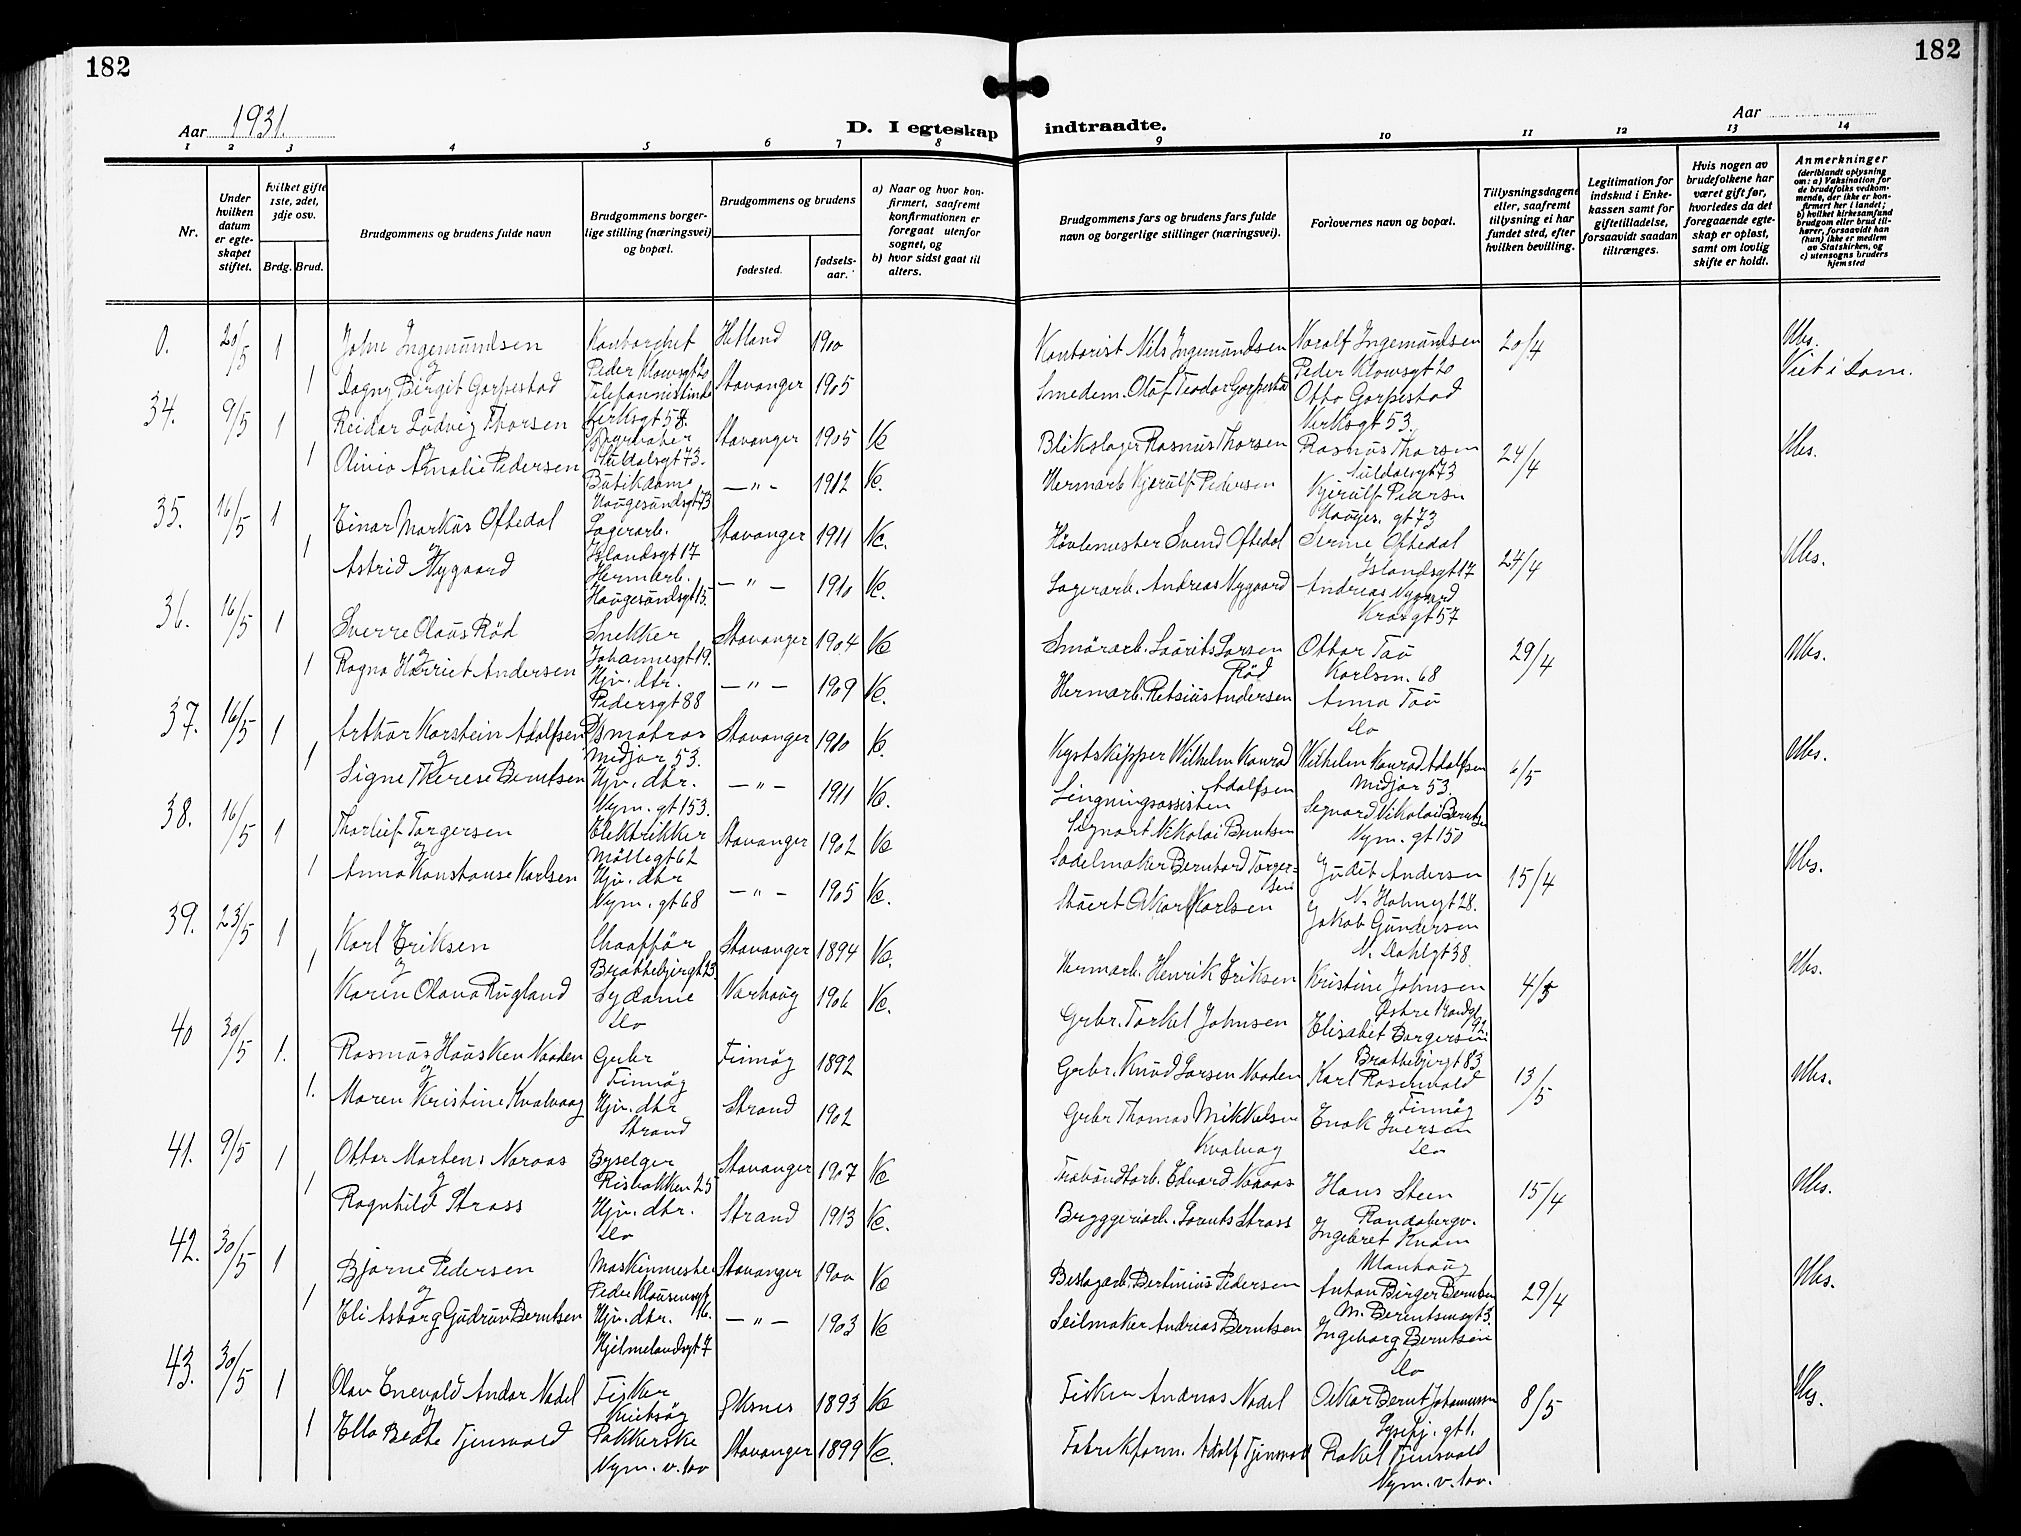 182
182
Aar 1931.
D. I egteskap indtraadte.
Aar
1 2 3 4 5 6 7 8 9 10 11 12 13 14
Nr.
Under hvilken datum er egteskapet stiftet.
hvilket gifte 1ste, 2det, 3dje osv.
Brdg. Brud.
Brudgommens og brudens fulde navn
Brudgommens borgerlige stilling (næringsvei) og bopæl.
Brudgommens og brudens
fødested.
fødselsaar.
a) Naar og hvor konfirmert, saafremt konfirmationen er foregaat utenfor sognet, og
b) hvor sidst gaat til alters.
Brudgommens fars og brudens fars fulde navn og borgerlige stillinger (næringsvei).
Forlovernes navn og bopæl.
Tillysningsdagene eller, saafremt tillysning ei har fundet sted, efter hvilken bevilling.
Legitimation for indskud i Enkekassen samt for giftetilladelse, forsaavidt saadan tiltrænges.
Hvis nogen av brudefolkene har været gift før, hvorledes da det foregaaende egteskap er opløst, samt om lovlig skifte er holdt.
Anmerkninger (deriblandt oplysning om: a) Vaksination for de brudefolks vedkommende, der ikke er konfirmert her i landet; b) hvilket kirkesamfund brudgom eller brud tilhører, forsaavidt han (hun) ikke er medlem av Statskirken, og c) utensogns bruders hjemsted
0. 20/5 1 John Ingemundsen Kontorchef Hetland 1900 Kontorist Nils Ingemundsen Noralf Ingemundsen 20/4 Ubs.
og Peder Klowsgt 20 Peder Klowsgt 20 Viet i Dom.
1 Dagny Birgit Gorpestad Telefonnistinde Stavanger 1905 Smedem. Olaf Teodor Gorpestad Otto Gorpestad
Verksgt 53.
34. 9/5 1 Reidar Ludvig Thorsen Stavanger 1905 Ve Blikslager Rasmus Thorsen Rasmus Thorsen 24/4 Ubs.
og Suldalsgt 73. Suldalsgt 73
1 Olivia Amalie Pedersen Butikdame —"— 1912 Ve. Hermarb. Kjerulf Pedersen
Haugesundsgt 73 Hauges. gt 73
35. 16/5 1 Einar Markus Oftedal Lagerarb. Stavanger 1911 Ve. Høvlemester Svend Oftedal Serine Oftedal 24/4 Ubs.
og Islandsgt 17 Islandsgt 17
1 Astrid Nygaard Hermarb. —"— 1910 Ve. Lagerarb. Andreas Nygaard Andreas Nygaard
Haugesundsgt 15.
36. 16/5 1 Sverre Olaus Rød Snekker Stavanger 1904 Ve Smørarb. Laurits Larsen Rød Ottar Tau 29/4 Ubs.
og Johannesgt 19. Karlsm. 68
1 Ragna Harriet Andersen Hjv. dtr. —"— 1909 Ve. Hermarb. Retsius Andersen Anna Tau
Pedersgt 88 Do
37. 16/5 1 Arthur Karstein Adolfsen Stavanger 1910 Ve. Kystskipper Wilhelm Konrad Adolfsen Wilhelm Konrad Adolfsen 6/5 Ubs.
og Midjor 53. Midjor 53.
1 Signe Therese Berntsen Hjv. dtr. —"— 1911 Ve. Ligningsassisten Signart Nikolai Berntsen
Nym. gt 153. Nym. gt 150
38. 16/5 1 Thorleif Torgersen Elektrikker Stavanger 1902 Ve Sadelmaker Bernhard Torgersen Judit Andersen 15/4 Ubs.
og Møllegt 62 N. Holmegt 28.
1 Anna Konstanse Karlsen Hjv. dtr —"— 1905 Ve. Stuert Oskar Karlsen Jakob Gundersen
Nym. gt 68 V. Dahlgt 38.
39. 23/5 1 Karl Eriksen Chauffør Stavanger 1894 Ve. Hermarb. Henrik Eriksen Kristine Johnsen 4/5 Ubs.
og Brattebjergt 23 Østre Randgt 92.
1 Karen Olava Rugland Sydame Varhaug 1906 Ve. Grbr. Torkel Johnsen Elisabet Borgersen
Do Brattebjergt 83
40 30/5 1. Rasmus Hausken Naaden Grbr Finnøy 1892 Grbr. Knud Larsen Naaden Karl Rosenvold 13/5 Ubs.
og Finnøy Finnøy
1. Maren Kristine Kvalvaag Hjv. dtr Strand 1902 Grbr Thomas Mikkelsen Kvalvag Enok Iversen
Strand Do
41. 9/5 1 Ottar Martens Noraas Byselger Stavanger 1907 Ve Hans Steen 15/4 Ubs.
og Risbakken 25 Randabergv.
1 Ragnhild Strass Hjv. dtr. Strand 1913 Ve. Bryggeriarb. Laurits Strass Ingebret Knam
Do
42. 30/5 1 Bjarne Pedersen Maskinmester Stavanger 1900 Ve Beslagarb. Bertinius Pedersen Anton Birger Berntsen 29/4 Ubs.
og Peder Klausensgt 16. M. Berentsensgt 3.
1 Eli Asborg Gudrun Berntsen Hjv. dtr. —"— 1903 Ve Seilmaker Andreas Berntsen Ingeborg Berntsen
Hjelmelandsgt 7 Do
43. 30/5 1 Olav Enevald Andor Nadel Fisker Øksnes 1893 Ve Fisker Andreas Nadel Oskar Bernt Johannessen 8/5 Ubs.
og Kvitsøy Lysefj. gt 1.
1 Ella Beate Tjensvold Pakkerske Stavanger 1899 Ve. Fabrikform. Adolf Tjensvold Rakel Tjensvold
Nym. v. 100 Nym. v. 100.